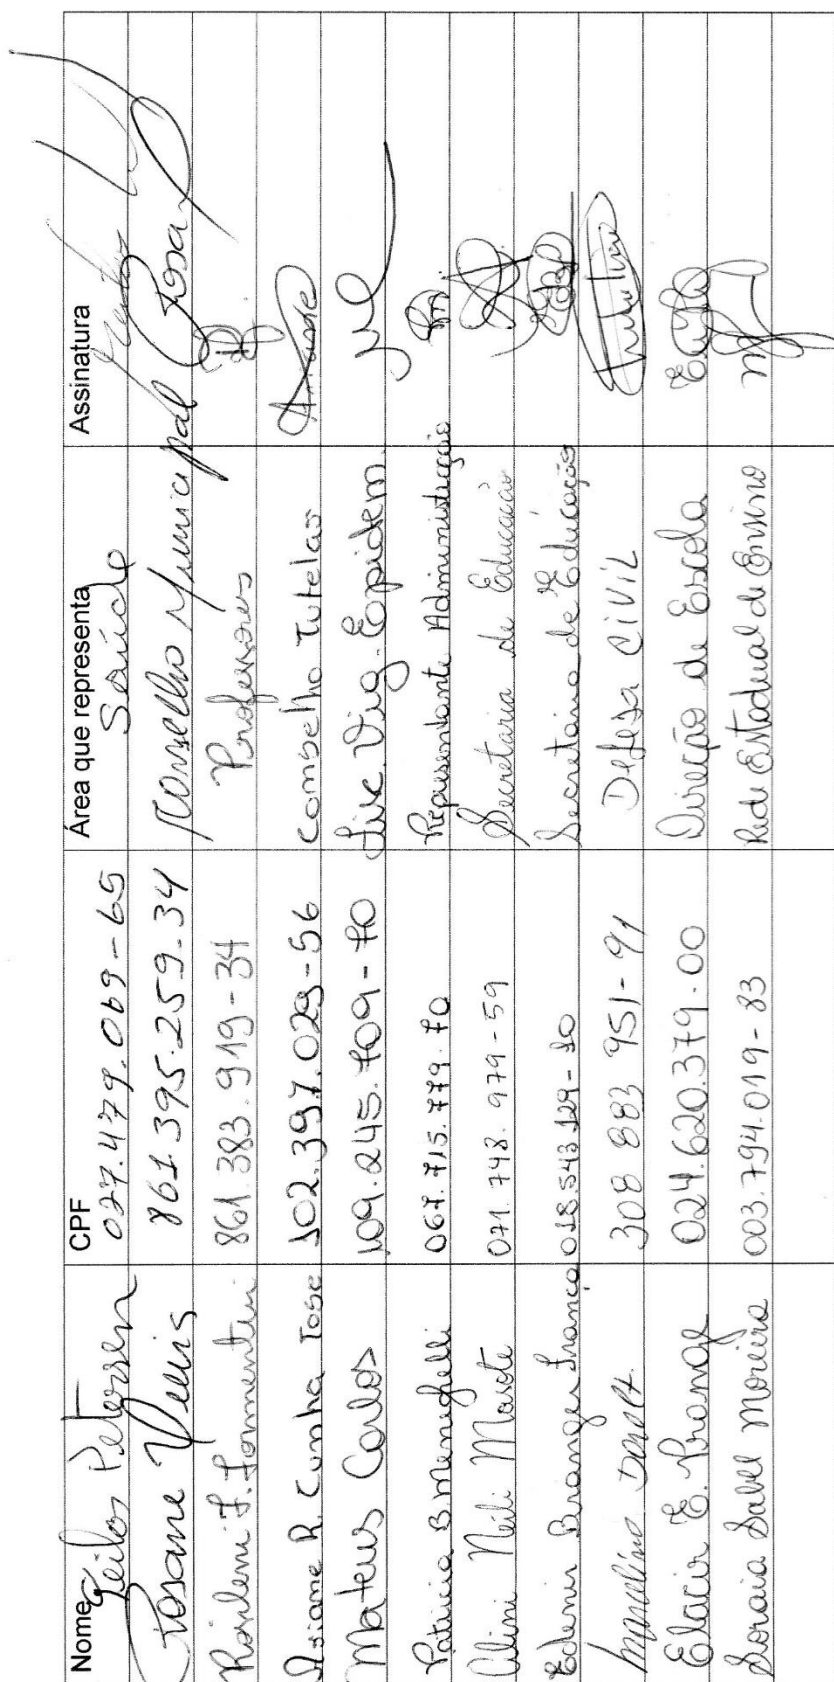 Nome CPF Área que representa Assinatura
Petersen 027.479.069-65 Saúde
Rosane 861.395.259.34 Conselho Municipal Rosa
861.383.919-34 Professores
Ariane R. Cunha José 102.397.029-56 Conselho Tutelar Ariane
Mateus Carlos 109.245.709-70 Vig. Epidem.
Patricia B Meneghelli 067.715.779.70 Representante Administração
071.748.979-59 Secretaria de Educação
Edenir Branger Franco 018.543.129-10 Secretaria de Educação
308 883 951-91 Defesa CIVIL
Elacir E. Prange 024.620.379.00 Direção de Escola
Soraia Sabel Moreira 003.794.019-83 Rede Estadual de Ensino